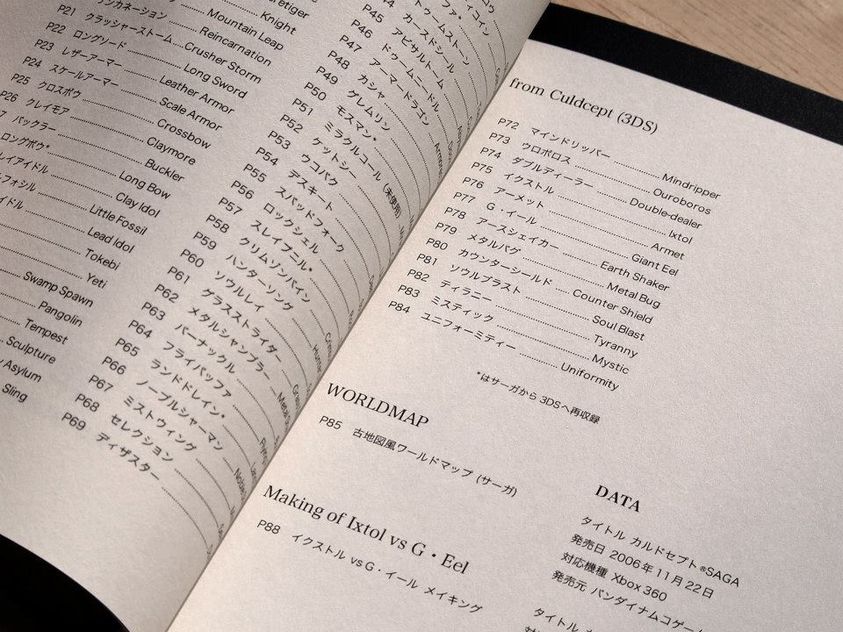 aretiger
Knight
ンカネーション Mountain Leap
Reincarnation
P21 クラッシャーストーム Crusher Storm
P22 ロングソード Long Sword
P23 レザーアーマー Leather Armor
P24 スケールアーマー Scale Armor
P25 クロスボウ Crossbow
P26 クレイモア Claymore
バックラー Buckler
ロングボウ* Long Bow
レイアイドル Clay Idol
フォシル Little Fossil
イドル Lead Idol
Tokebi
Yeti
Swamp Spawn
Pangolin
Tempest
Sculpture
Asylum
Sling
P45 アビサルトーム
P46 ドゥームニドル
P47 アーマードラゴン
P48 カシャ
P49 グレムリン
P50 モスマン*
P51 ミラクルコール（未使用）
P52 ケットシー
P53 ウコバク
P54 デスキート
P55 スパッドフォーク
P56 ロックシェル
P57 スレイプニル*
P58 クリムゾンパイン
P59 ハンターソング
P60 ソウルレイ
P61 グラスストライダー
P62 メタルシャンブラー
P63 バーナックル
P64 フライパッファ
P65 ランドドレイン*
P66 ノーブルシャーマン
P67 ミストウィング
P68 セレクション
P69 ディザスター
from Culdcept (3DS)
P72 マインドリッパー Mindripper
P73 ウロボロス Ouroboros
P74 ダブルディーラー Double-dealer
P75 イクストル Ixtol
P76 アーメット Armet
P77 G・イール Giant Eel
P78 アースシェイカー Earth Shaker
P79 メタルバグ Metal Bug
P80 カウンターシールド Counter Shield
P81 ソウルブラスト Soul Blast
P82 ティラニー Tyranny
P83 ミスティック Mystic
P84 ユニフォーミティー Uniformity
*はサーガから3DSへ再収録
WORLDMAP
P85 古地図風ワールドマップ（サーガ）
Making of Ixtol vs G・Eel
P88 イクストル vs G・イール メイキング
DATA
タイトル カルドセプト®SAGA
発売日 2006年11月22日
対応機種 Xbox 360
発売元 バンダイナムコゲー
タイトル